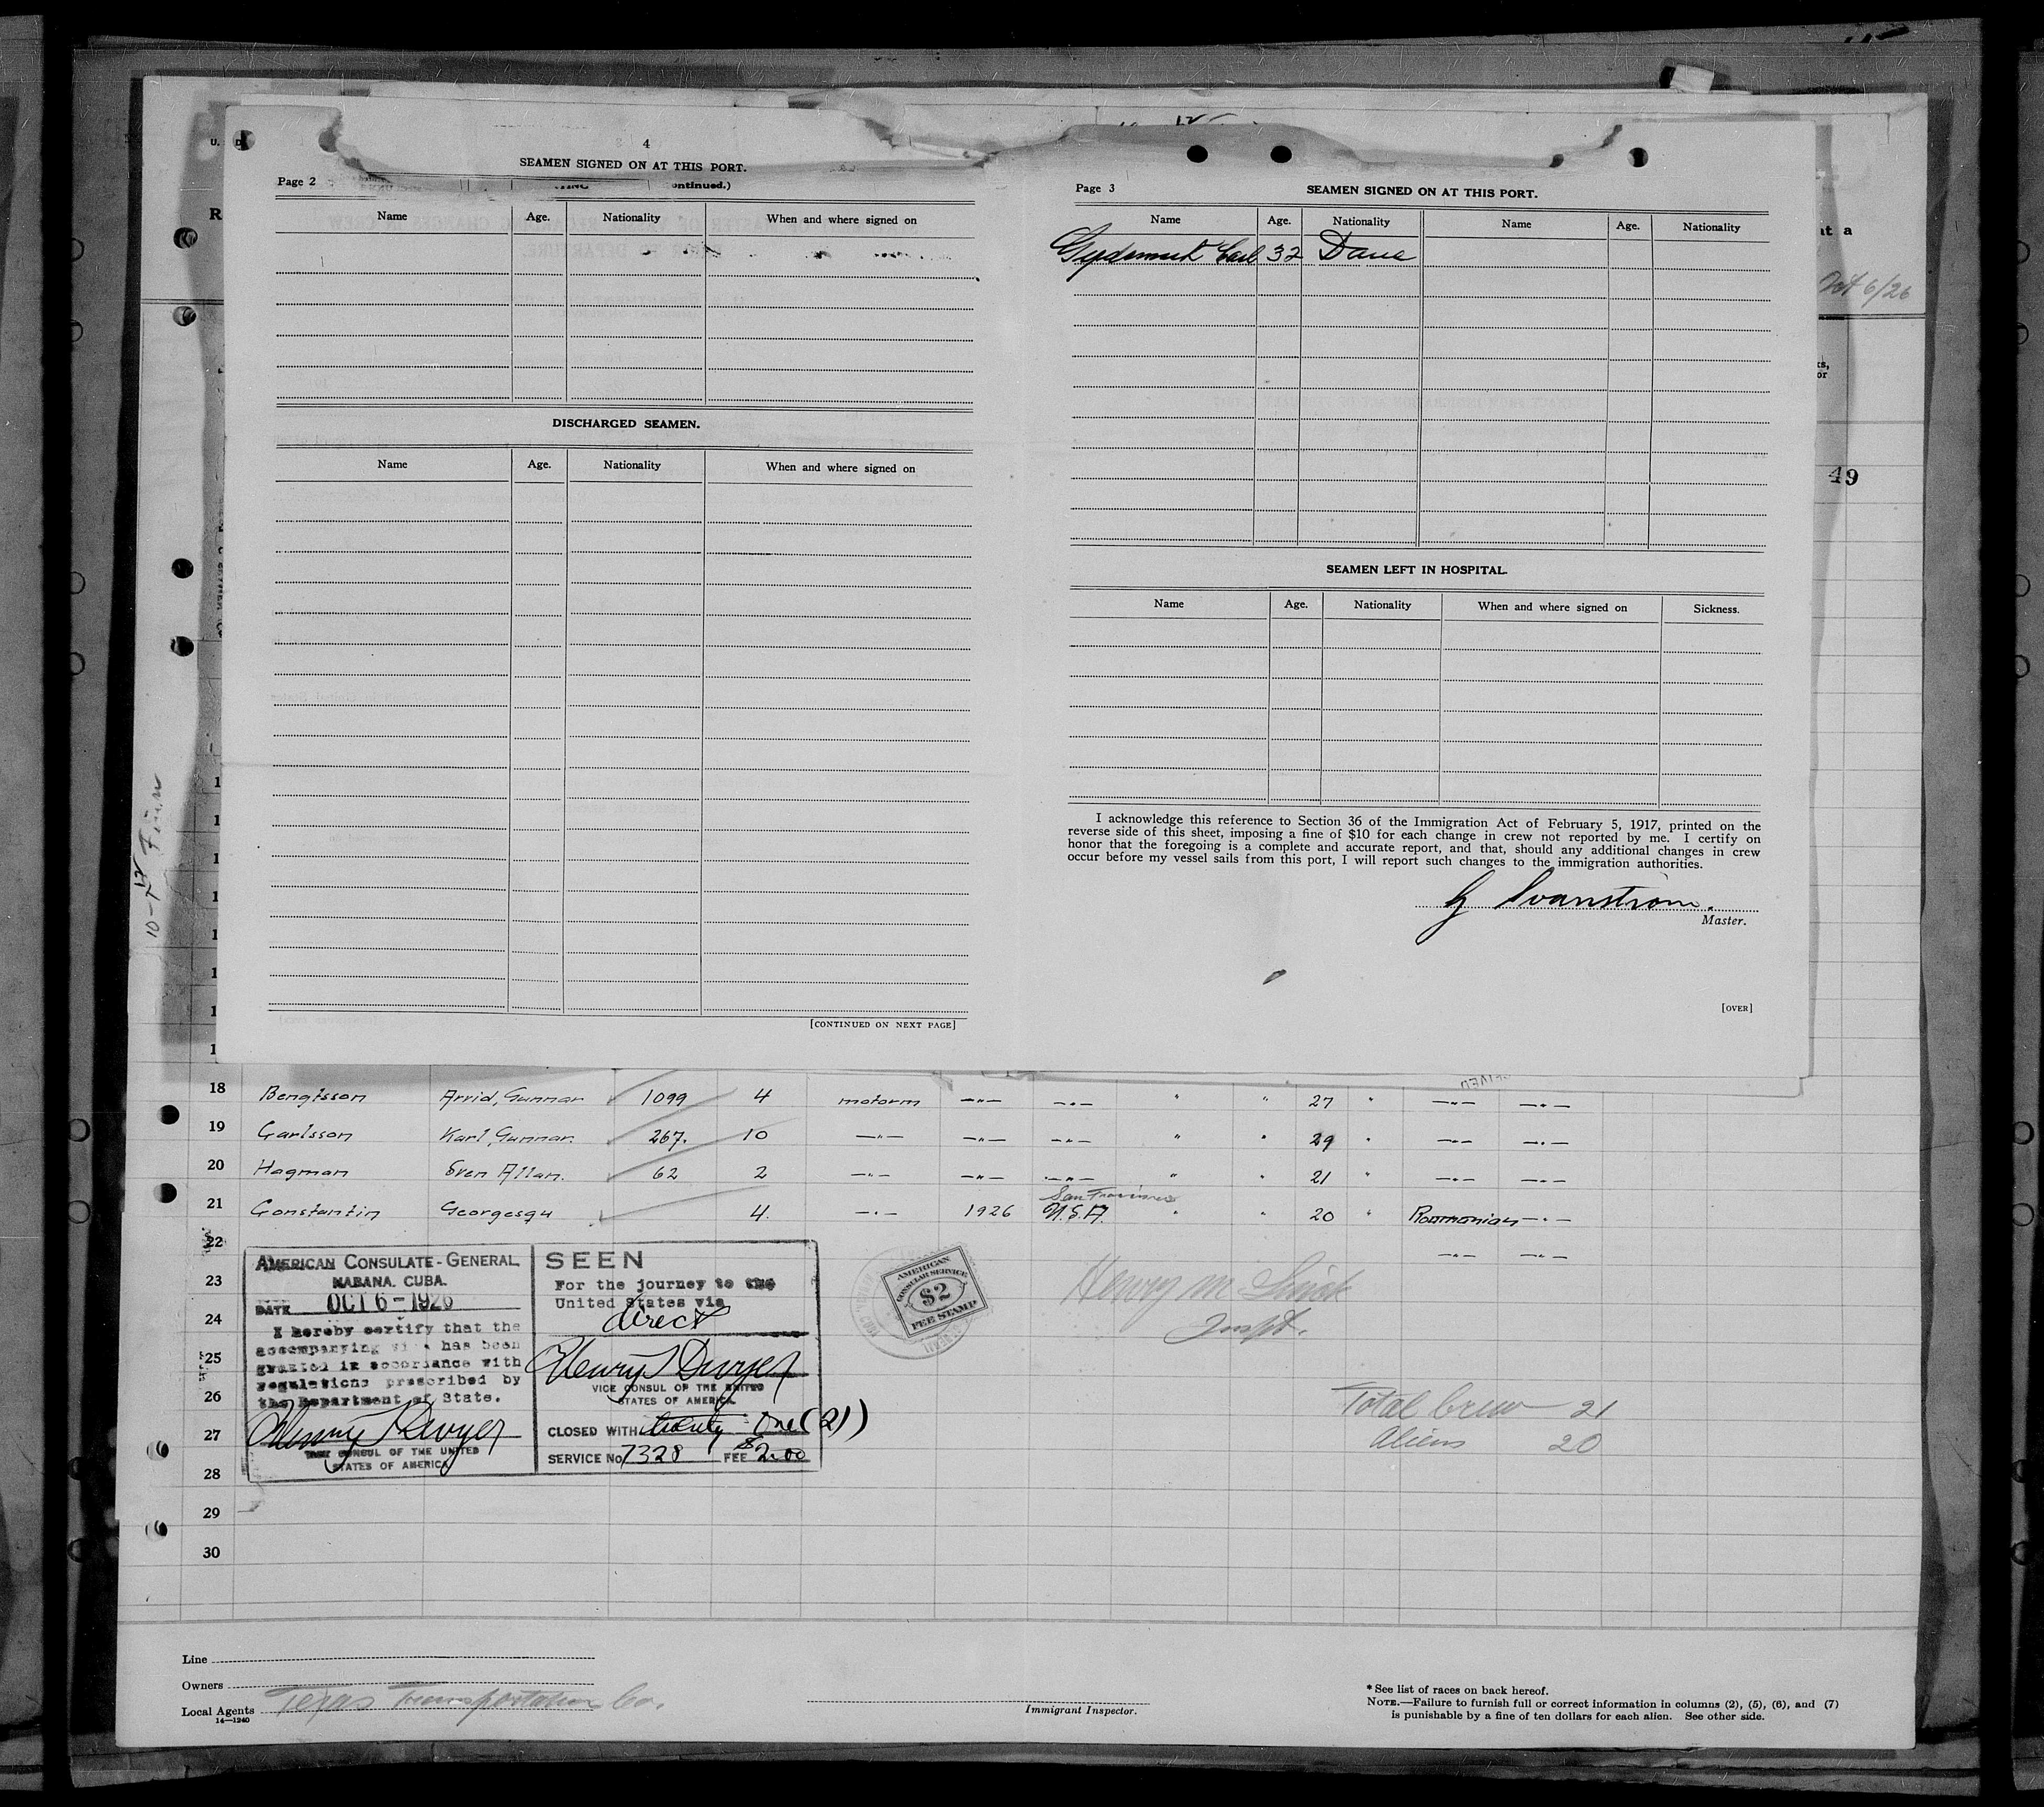 4
SEAMEN SIGNED ON AT THIS PORT.
Page 2
ontinued.)
Name Age. Nationality When and where signed on
DISCHARGED SEAMEN.
Name Age. Nationality When and where signed on
[CONTINUED ON NEXT PAGE]
Page 3 SEAMEN SIGNED ON AT THIS PORT.
Name Age. Nationality Name Age. Nationality
Carl 32 Dane
SEAMEN LEFT IN HOSPITAL.
Name Age. Nationality When and where signed on Sickness.
I acknowledge this reference to Section 36 of the Immigration Act of February 5, 1917, printed on the
reverse side of this sheet, imposing a fine of $10 for each change in crew not reported by me. I certify on
honor that the foregoing is a complete and accurate report, and that, should any additional changes in crew
occur before my vessel sails from this port, I will report such changes to the immigration authorities.
G Svanstrom.
Master.
[OVER]
U. D
R
at a
Oct 6/26
ks,
or
49
18 Bengtsson Arvid, Gunnar 1099 4 motorm —"— —"— " " 27 " —"— —"—
19 Carlsson Karl, Gunnar. 267. 10 —"— —"— —"— " " 29 " —"— —"—
20 Hagman Sven Allan. 62 2 —"— —"— —"— " " 21 " —"— —"—
San Francisco
21 Constantin Georgesqu 4. —"— 1926 U.S.A. " " 20 " Roumanian —"—
22 —"— —"—
23
24
25
26
27
28
29
30
AMERICAN CONSULATE-GENERAL
HABANA, CUBA.
DATE OCT 6-1926
I hereby certify that the
accompanying visa has been
granted in accordance with
regulations prescribed by
the Department of State.
Henry Dwyer
VICE CONSUL OF THE UNITED
STATES OF AMERICA
SEEN
For the journey to the
United States via
direct
Henry Dwyer
VICE CONSUL OF THE UNITED
STATES OF AMERICA
CLOSED WITH twenty-One (21)
SERVICE No 7328 FEE $2.00
AMERICAN
CONSULAR SERVICE
$2
FEE STAMP
Henry M
Inspt.
Total Crew 21
Aliens 20
Line
Owners
Local Agents Texas Transportation Co.
14—1240
Immigrant Inspector.
* See list of races on back hereof.
NOTE.—Failure to furnish full or correct information in columns (2), (5), (6), and (7)
is punishable by a fine of ten dollars for each alien. See other side.